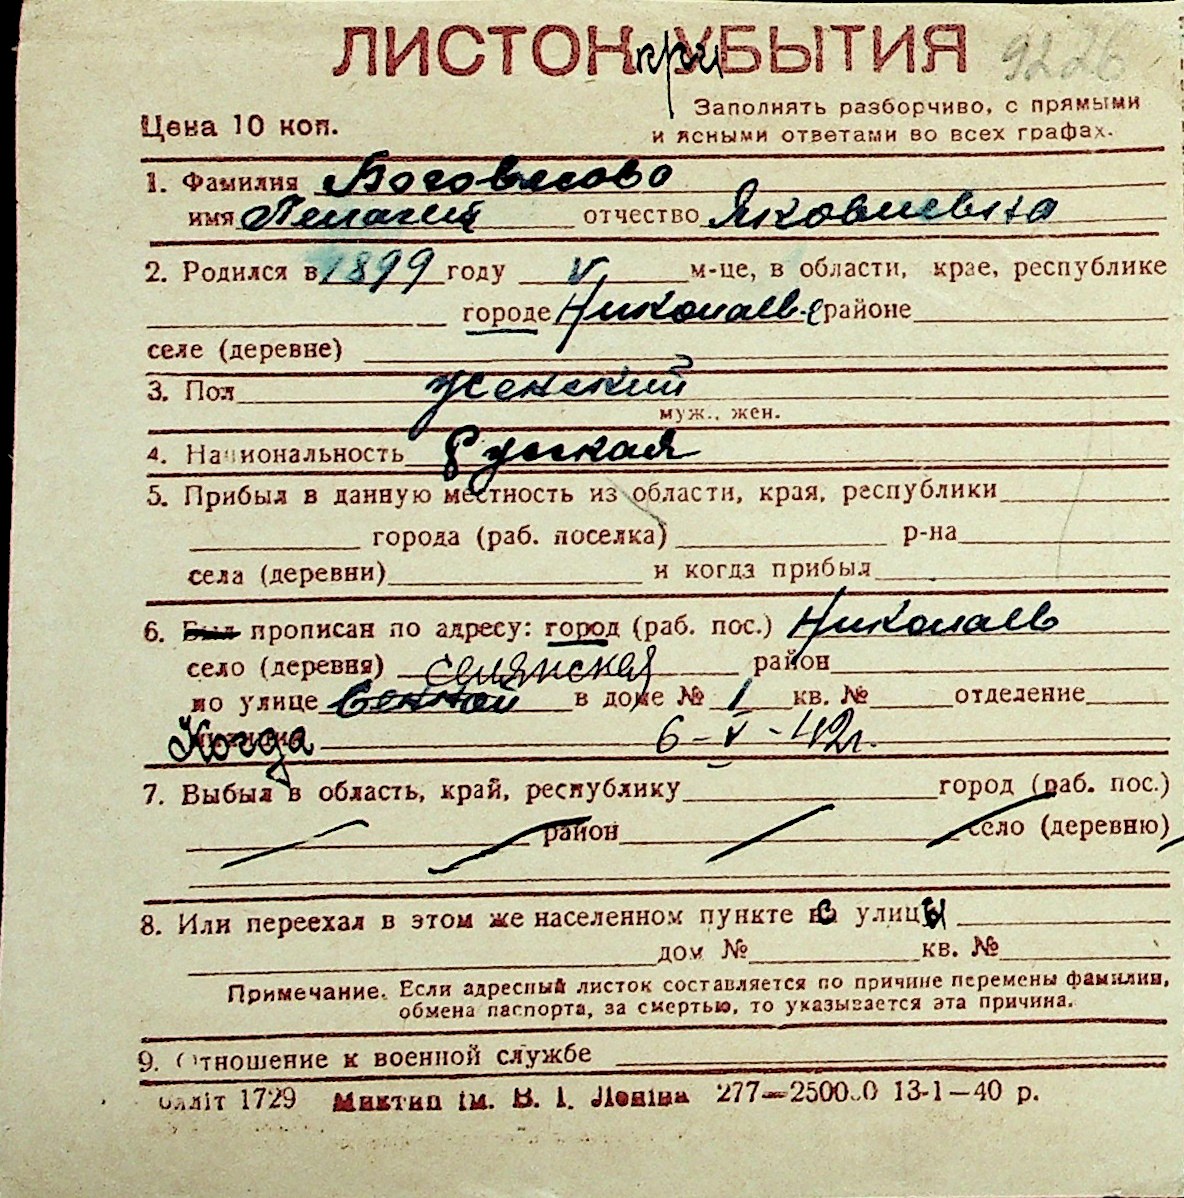 ЛИСТОК при УБЫТИЯ 9226
Заполнять разборчиво, с прямыми
Цена 10 коп.
и ясными ответами во всех графах.
1. Фамилия Боговясово
имя Пелагий отчество Яковлевна
2. Родился в 1899 году V м-це, в области, крае, республике
городе Николаев-е районе
селе (деревне)
3. Пол женский
муж., жен.
4. Национальность Русская
5. Прибыл в данную местность из области, края, республики
города (раб. поселка) р-на
села (деревни) и когда прибыл
6. Был прописан по адресу: город (раб. пос.) Николаев
село (деревня) селянская район
по улице Сенной в доме № 1 кв. № отделение
Когда 6-V-42г.
7. Выбыл в область, край, республику город (раб. пос.)
район село (деревню)
8. Или переехал в этом же населенном пункте с улицы
дом № кв. №
Примечание. Если адресный листок составляется по причине перемены фамилии,
обмена паспорта, за смертью, то указывается эта причина.
9. Отношение к военной службе
1729 Миктип ім. В. І. Леніна 277—25000 13-1—40 р.